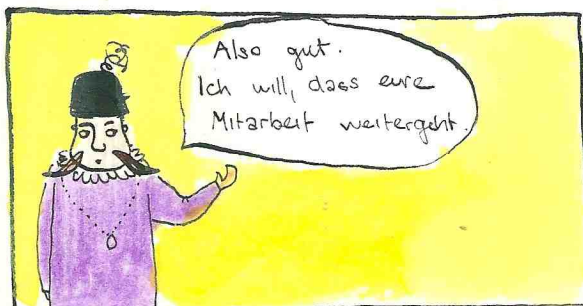 Also gut.
Ich will, dass eure
Mitarbeit weitergeht.